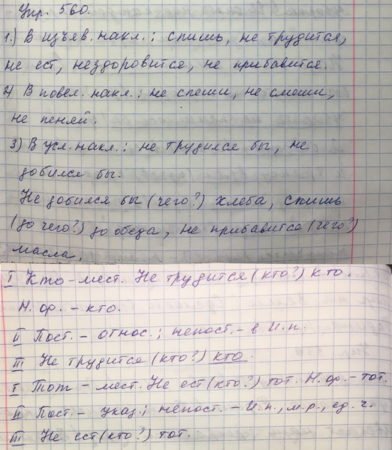 Упр. 560.
1.) В изъяв. накл.: спишь, не трудится,
не ест, нездоровится, не прибавится.
2) В повел. накл.: не спеши, не смеши,
не пеняй.
3) В усл. накл.: не трудился бы, не
добился бы.
Не добился бы (чего?) хлеба, спишь
(до чего?) до обеда, не прибавится (чего?)
масла.
I Кто - мест. Не трудится (кто?) кто.
Н. ф. - кто.
II Пост. - относ.; непост. - в И.п.
III Не трудится (кто?) кто.
I Тот - мест. Не ест (кто?) тот. Н.ф. - тот.
II Пост. - указ.; непост. - И.п., м.р., ед. ч.
III Не ест (кто?) тот.